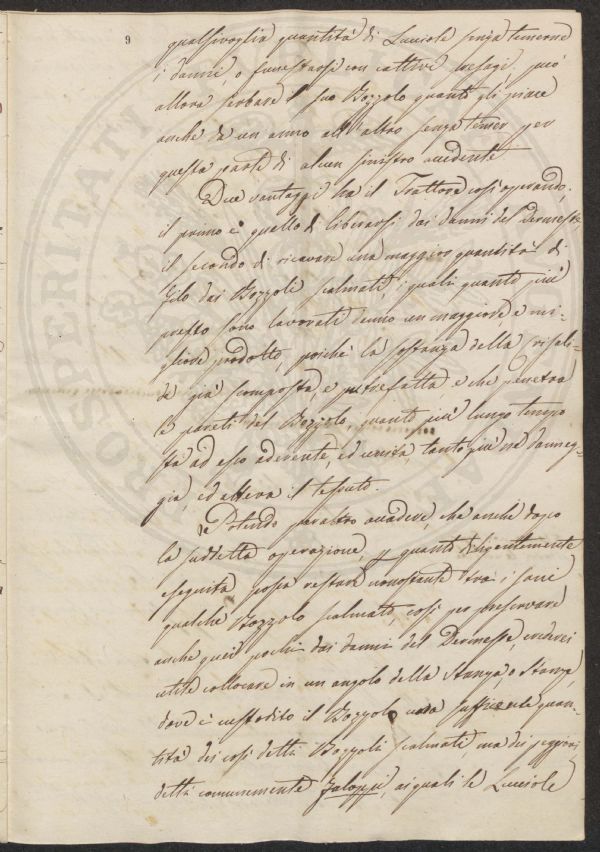 9
qualsivoglia quantità di Lucciole senza temerne
i danni, o funestarsi con cattivi presagi, può
allora serbare il suo Bozzolo quanto gli piace
anche da un anno all'altro senza temer per
questa parte di alcun sinistro accidente
Due vantaggi ha il Trattore così operando,
il primo è quello di liberarsi dai danni del Dermeste,
il secondo di ricavare una maggior quantità di
filo dai Bozzoli calmati, i quali quanto più
presto sono lavorati danno un maggiore, e mi-
gliore prodotto, poichè la sostanza della crisali-
de già scomposta, e putrefatta, e che penetra
le pareti del Bozzolo, quanto più lungo tempo
stà ad esso aderente, ed unita, tanto più ne danneg-
gia, ed altera il tessuto.
Potendo peraltro accadere, che anche dopo
la suddetta operazione, p quanto diligentemente
eseguita possa restare nonostante tra i sani
qualche Bozzolo calmato, così per preservare
anche quei pochi dai danni del Dermeste, crederei
utile collocare in un angolo della Stanza, o Stanze,
dove è custodito il Bozzolo una sufficiente quan-
tità dei così detti Bozzoli calmati, ma dei peggiori
detti comunemente Faloppi, ai quali le Lucciole